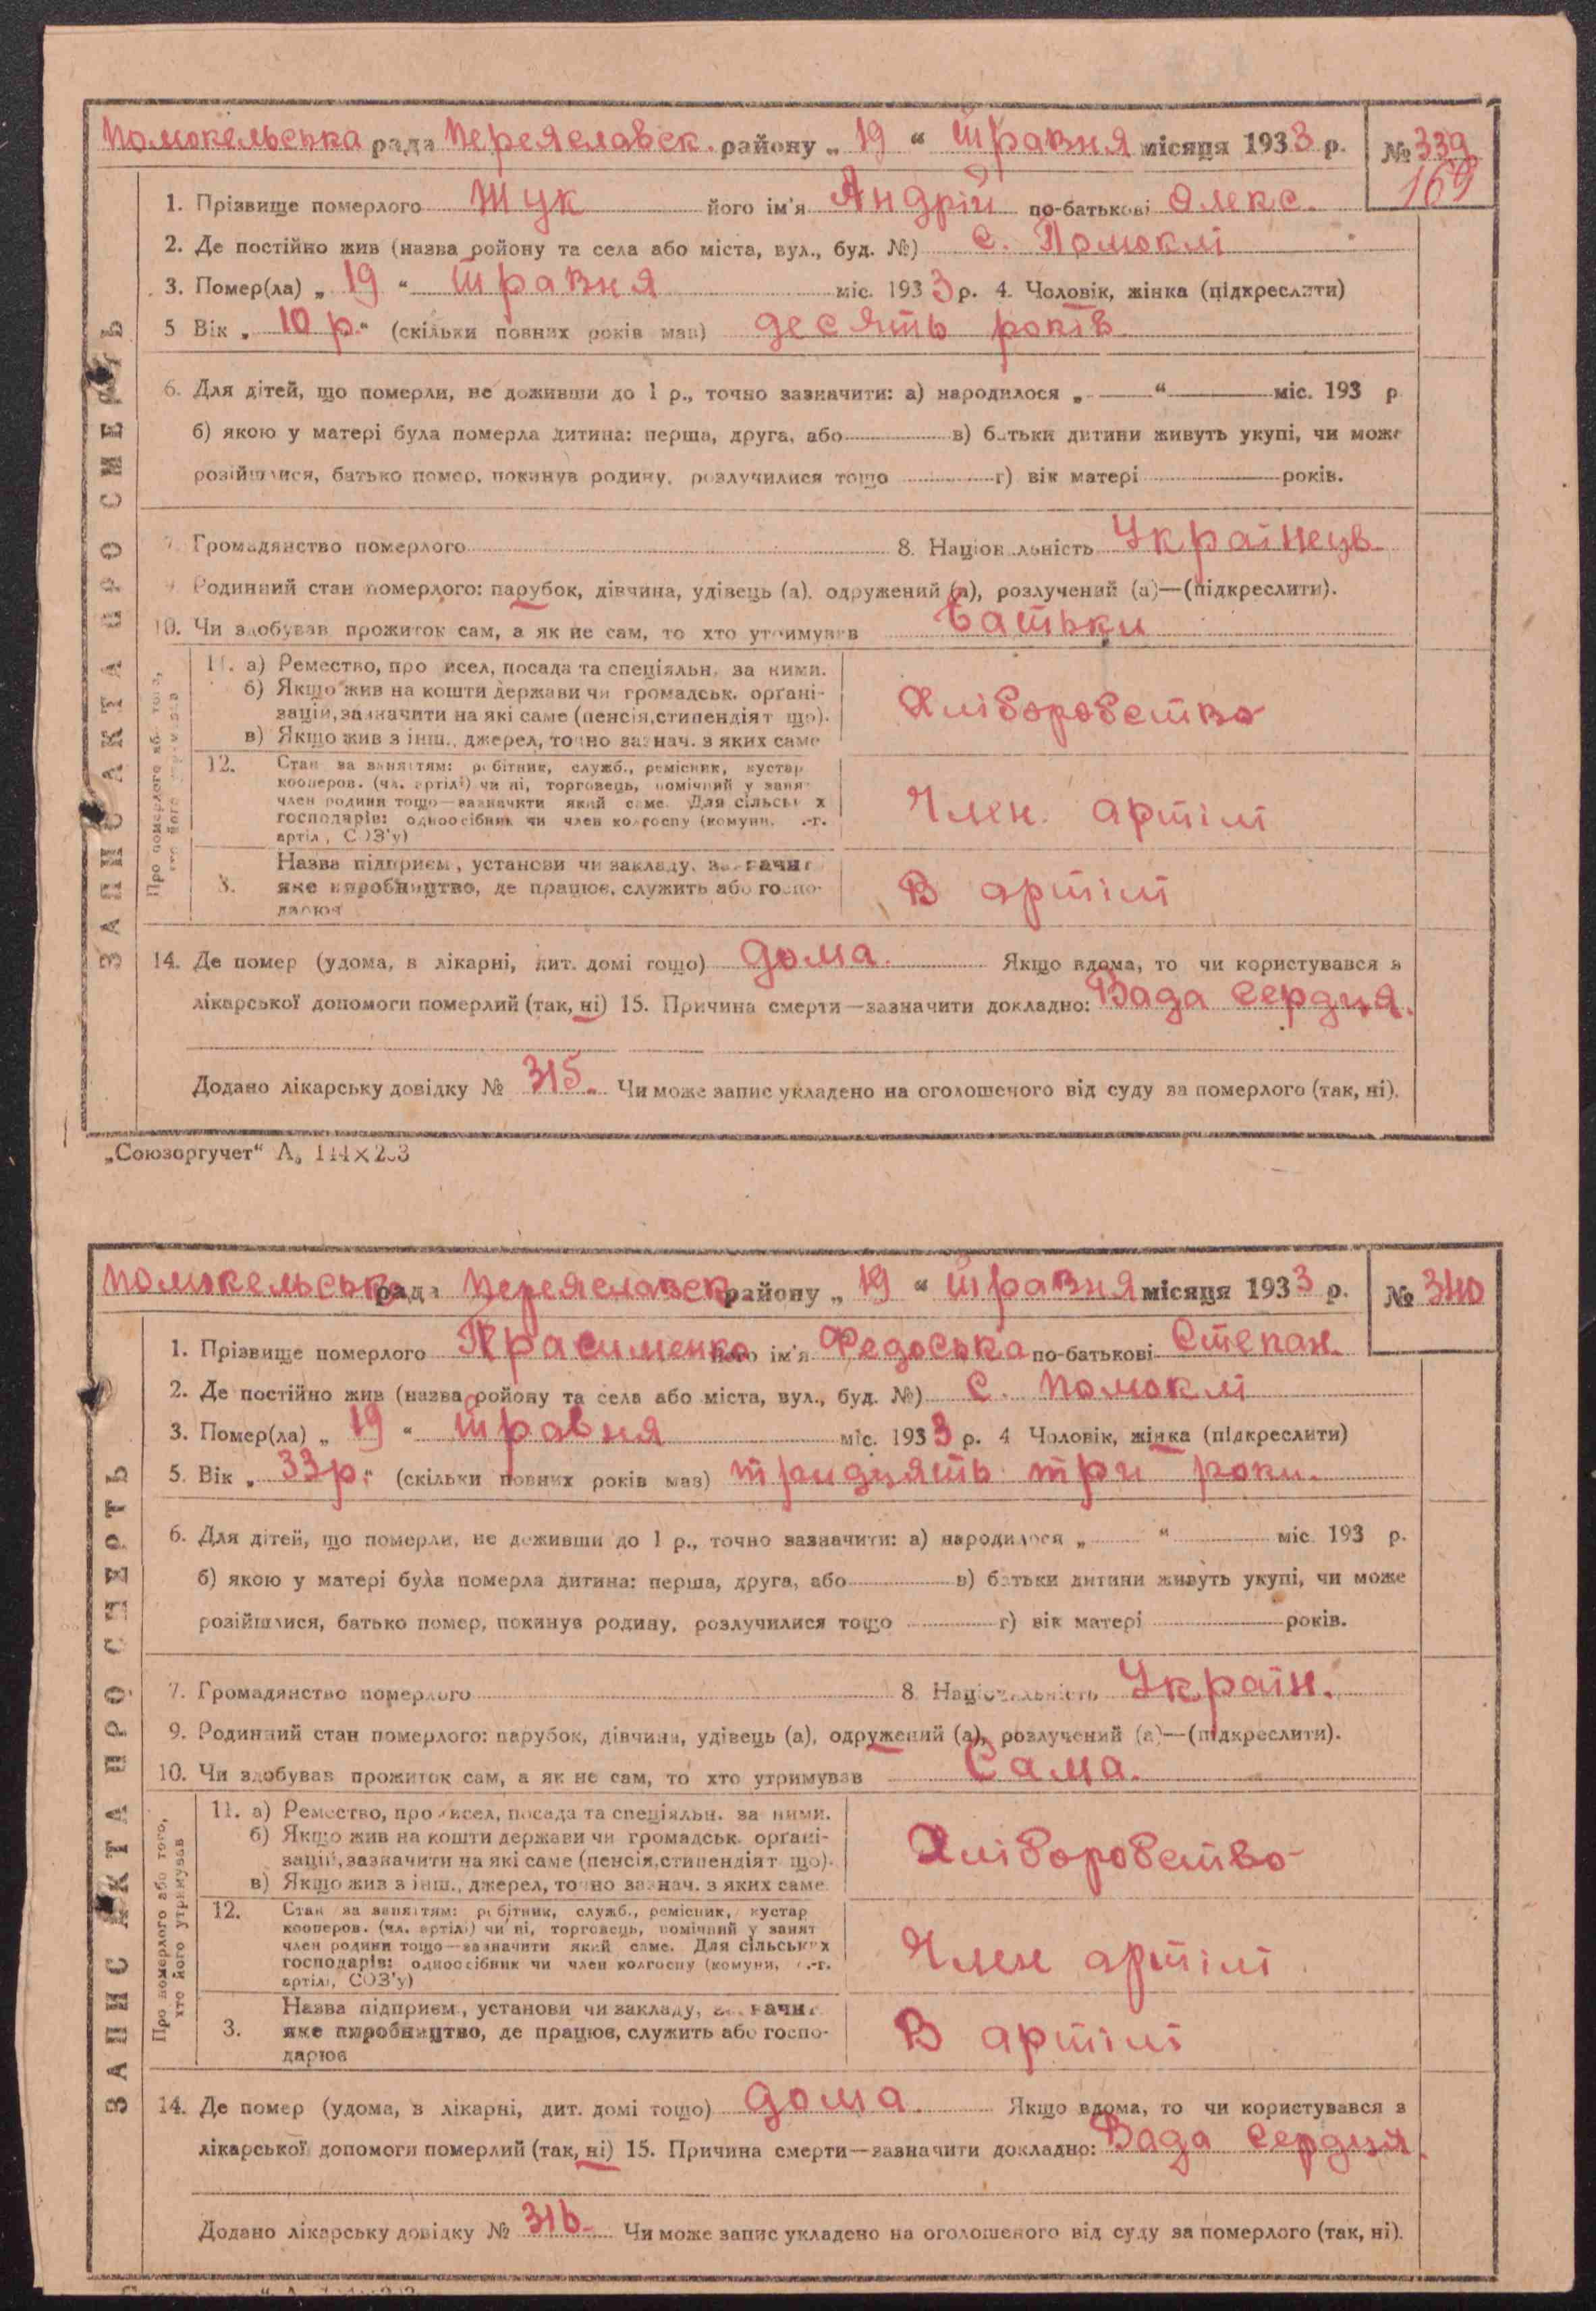 Помокельська рада Переяславск. району „ 19 “ травня місяця 1933 р. № 339
169
1. Прізвище померлого Жук його ім'я Андрій по-батькові Олекс.
2. Де постійно жив (назва ройону та села або міста, вул., буд. №) с. Помоклі
3. Помер(ла) „ 19 “ травня міс. 1933 р. 4. Чоловік, жінка (підкреслити)
5 Вік „ 10 р. “ (скільки повних років мав) десять років
6. Для дітей, що померли, не доживши до 1 р., точно зазначити: а) народилося „ — “ — міс. 193 р
б) якою у матері була померла дитина: перша, друга, або в) батьки дитини живуть укупі, чи може
розійшлися, батько помер, покинув родину, розлучилися тощо г) вік матері років.
7. Громадянство померлого 8. Національність Українець
9. Родинний стан померлого: парубок, дівчина, удівець (а), одружений (а), розлучений (а)—(підкреслити).
10. Чи здобував прожиток сам, а як не сам, то хто утримував Батьки
ЗАПИС АКТА ПРО СМЕРТЬ
Про померлого або того, хто його утримував
11. а) Ремество, промисел, посада та спеціяльн. за ними.
б) Якщо жив на кошти держави чи громадськ. органі-
зацій, зазначити на які саме (пенсія, стипендіят що).
в) Якщо жив з інш., джерел, точно зазнач. з яких саме
Хліборобство
12. Стан за заняттям: робітник, служб., ремісник, кустар
кооперов. (чл. артілі) чи ні, торговець, помічний у занят
член родини тощо—зазначити який саме. Для сільських
господарів: одноосібник чи член колгоспу (комуни, с.-г.
артілі, СОЗ'у)
Член артілі
3. Назва підприєм., установи чи закладу, зазначит
яке виробництво, де працює, служить або госпо-
дарює
В артілі
14. Де помер (удома, в лікарні, дит. домі тощо) дома. Якщо вдома, то чи користувався з
лікарської допомоги померлий (так, ні) 15. Причина смерти—зазначити докладно: Вада серця.
Додано лікарську довідку № 315. Чи може запис укладено на оголошеного від суду за померлого (так, ні).
„Союзоргучет“
Помокельська рада Переяславск району „ 19 “ травня місяця 1933 р. № 340
1. Прізвище померлого Герасименко його ім'я Федоська по-батькові Степан.
2. Де постійно жив (назва ройону та села або міста, вул., буд. №) с. Помоклі
3. Помер(ла) „ 19 “ травня міс. 1933 р. 4 Чоловік, жінка (підкреслити)
5. Вік „ 33 р. “ (скільки повних років мав) тридцять три роки.
6. Для дітей, що померли, не доживши до 1 р., точно зазначити: а) народилося „ “ міс. 193 р.
б) якою у матері була померла дитина: перша, друга, або в) батьки дитини живуть укупі, чи може
розійшлися, батько помер, покинув родину, розлучилися тощо г) вік матері років.
7. Громадянство померлого 8. Національність Україн.
9. Родинний стан померлого: парубок, дівчина, удівець (а), одружений (а), розлучений (а)—(підкреслити).
10. Чи здобував прожиток сам, а як не сам, то хто утримував Сама.
ЗАПИС АКТА ПРО СМЕРТЬ
Про померлого або того, хто його утримував
11. а) Ремество, промисел, посада та спеціяльн. за ними.
б) Якщо жив на кошти держави чи громадськ. органі-
зацій, зазначити на які саме (пенсія, стипендіят що).
в) Якщо жив з інш., джерел, точно зазнач. з яких саме.
Хліборобство
12. Стан за заняттям: робітник, служб., ремісник, кустар
кооперов. (чл. артілі) чи ні, торговець, помічний у занят
член родини тощо—зазначити який саме. Для сільських
господарів: одноосібник чи член колгоспу (комуни, с.-г.
артілі, СОЗ'у)
Член артілі
3. Назва підприєм., установи чи закладу, зазначит
яке виробництво, де працює, служить або госпо-
дарює
В артілі
14. Де помер (удома, в лікарні, дит. домі тощо) дома. Якщо вдома, то чи користувався з
лікарської допомоги померлий (так, ні) 15. Причина смерти—зазначити докладно: Вада серця.
Додано лікарську довідку № 316. Чи може запис укладено на оголошеного від суду за померлого (так, ні).